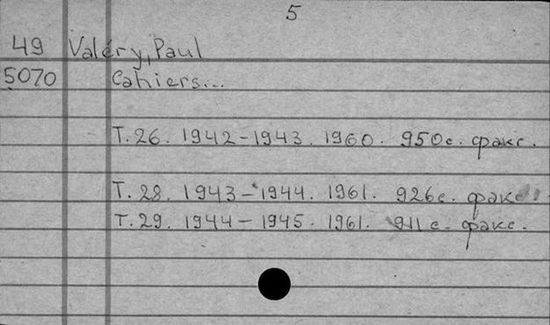 5
49 Valéry, Paul
5070 Cahiers...
Т. 26. 1942-1943. 1960. 950с. факс.
Т. 28. 1943-1944. 1961. 926с. факс.
Т. 29. 1944-1945. 1961. 911с. факс.